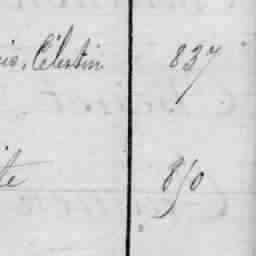 is, Célestin 837
te 850